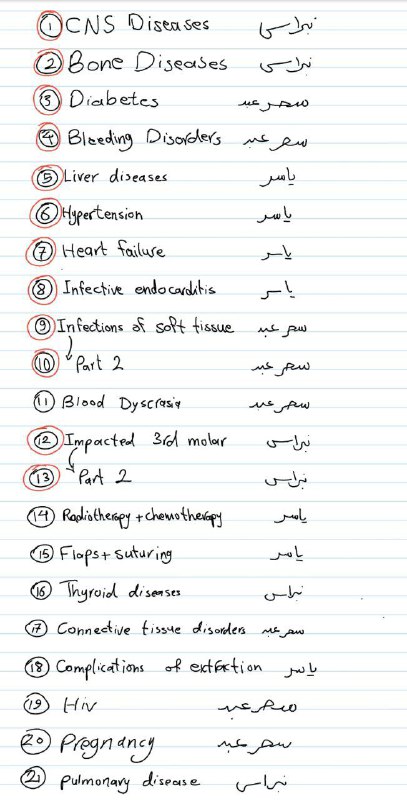 1 CNS Diseases نبراس
2 Bone Diseases نبراس
3 Diabetes سمر عبد
4 Bleeding Disorders سمر عبد
5 Liver diseases ياسر
6 Hypertension ياسر
7 Heart failure ياسر
8 Infective endocarditis ياسر
9 Infections of soft tissue سمر عبد
10 Part 2 سمر عبد
11 Blood Dyscrasia سمر عبد
12 Impacted 3rd molar نبراس
13 Part 2 نبراس
14 Radiotherapy + chemotherapy ياسر
15 Flaps + suturing ياسر
16 Thyroid diseases نبراس
17 Connective tissue disorders سمر عبد
18 Complications of extraction ياسر
19 Hiv سمر عبد
20 Pregnancy سمر عبد
21 Pulmonary disease نبراس